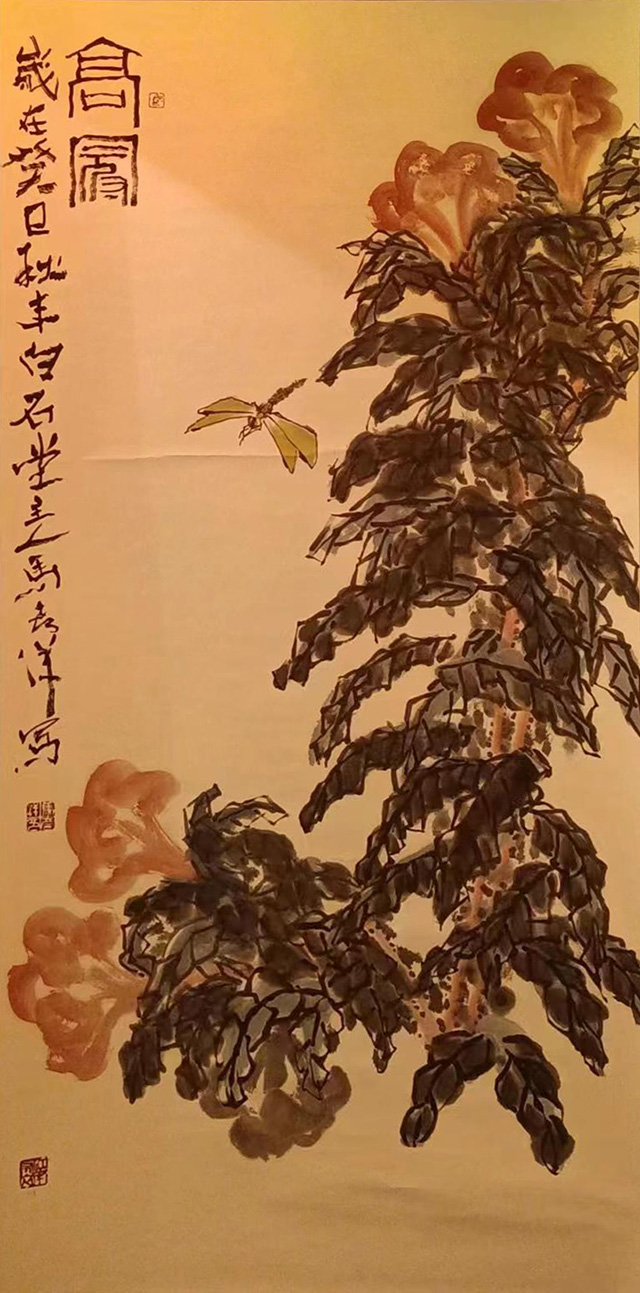 高
歲在癸巳秋末白石堂主人馬洋寫